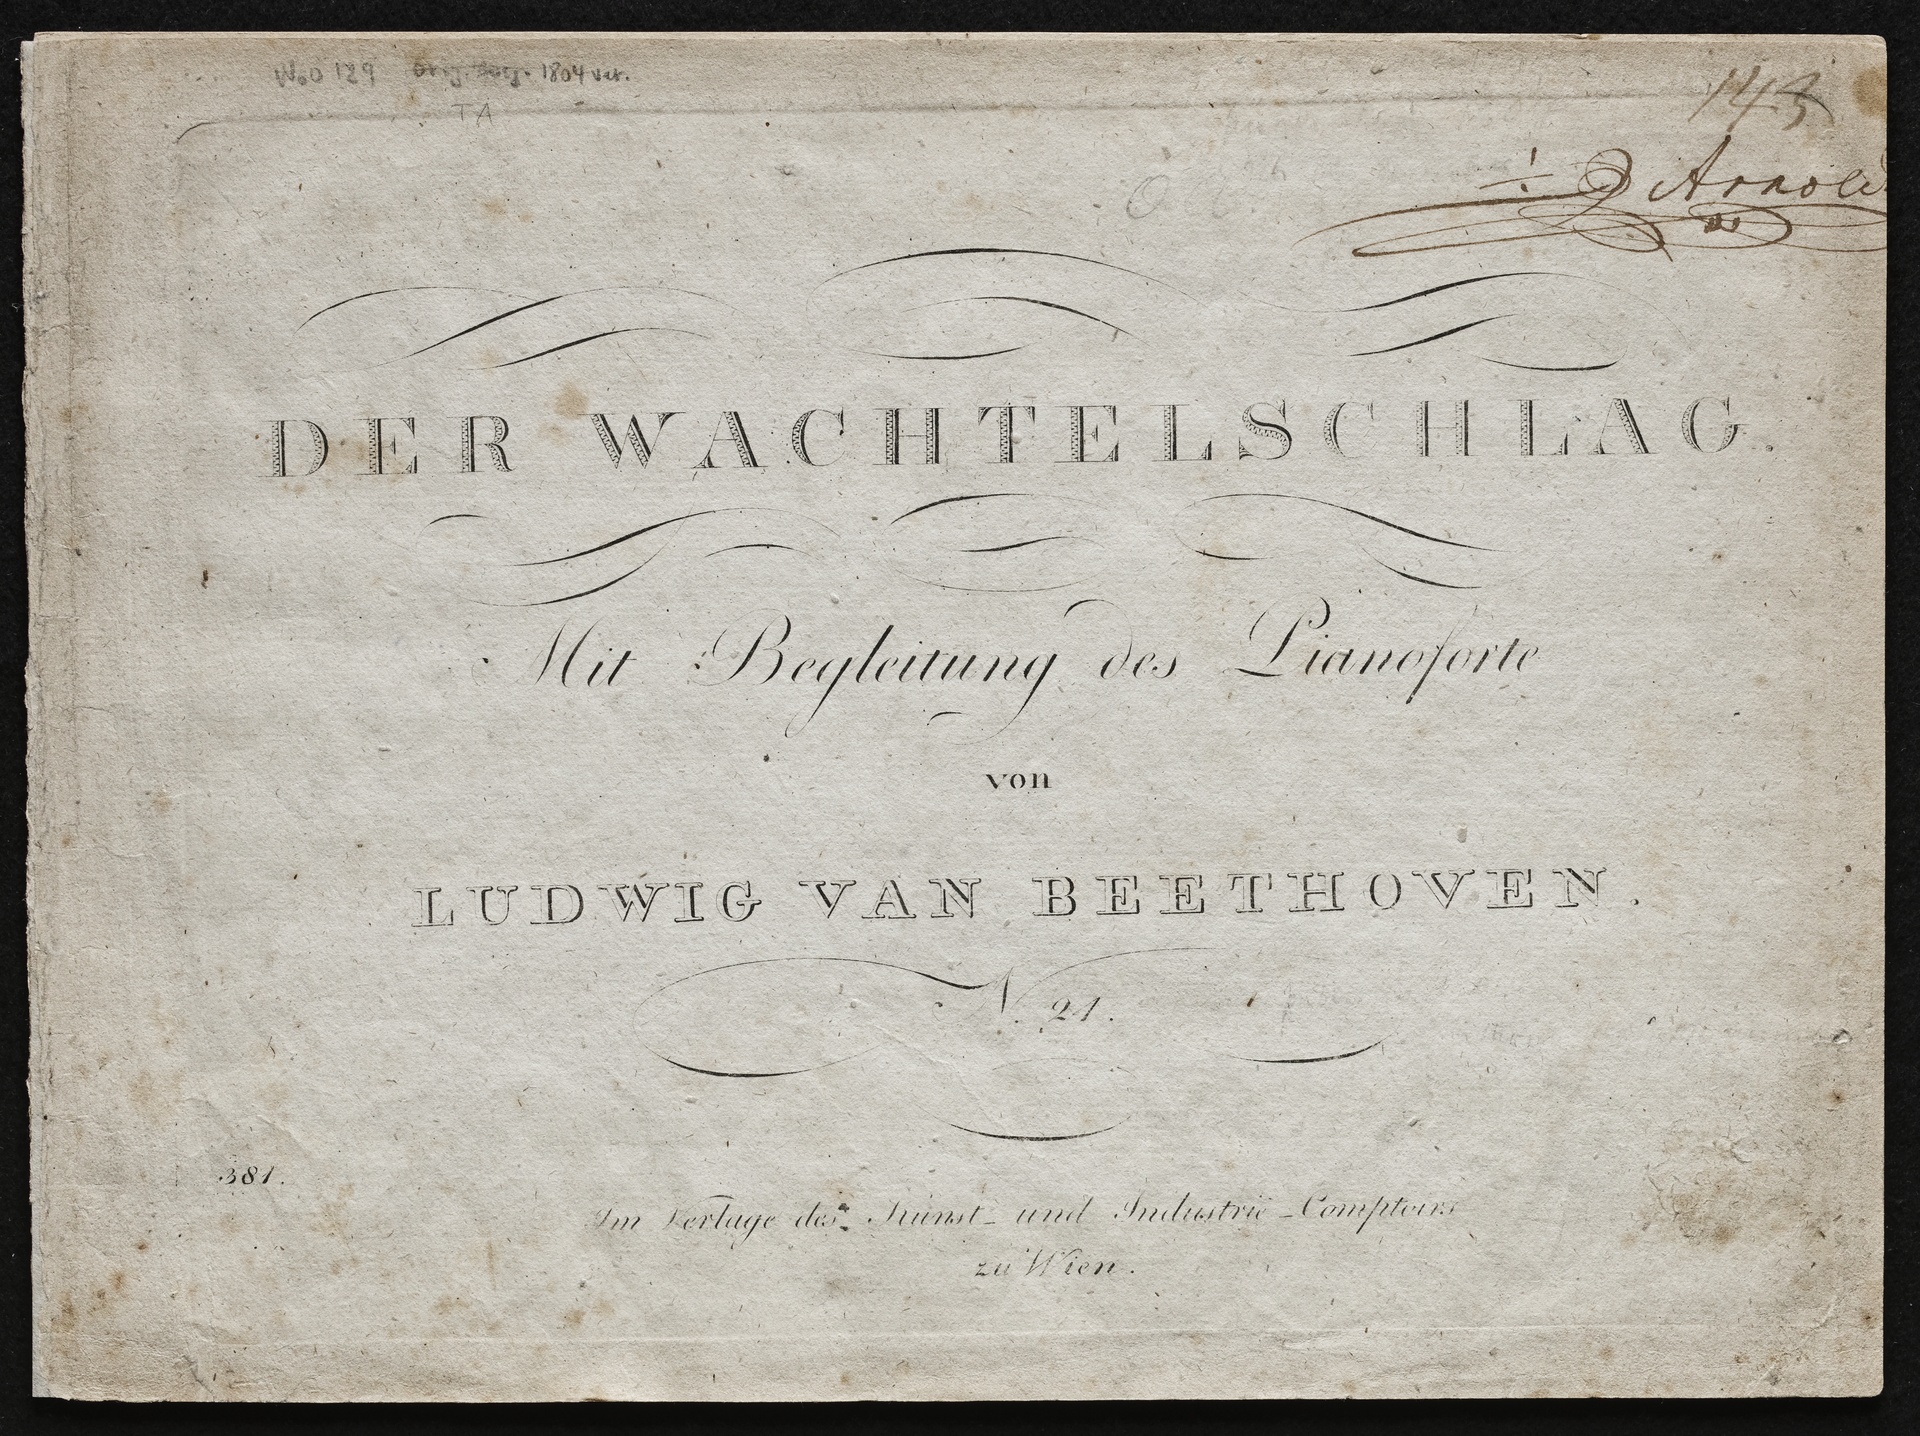 WoO 129 1804 vct.
TA
143
Arnold
DER WACHTELSCHLAG.
Mit Begleitung des Pianoforte
von
LUDWIG VAN BEETHOVEN.
N. 21.
381.
Im Verlage des Kunst- und Industrie-Comptoirs
zu Wien.